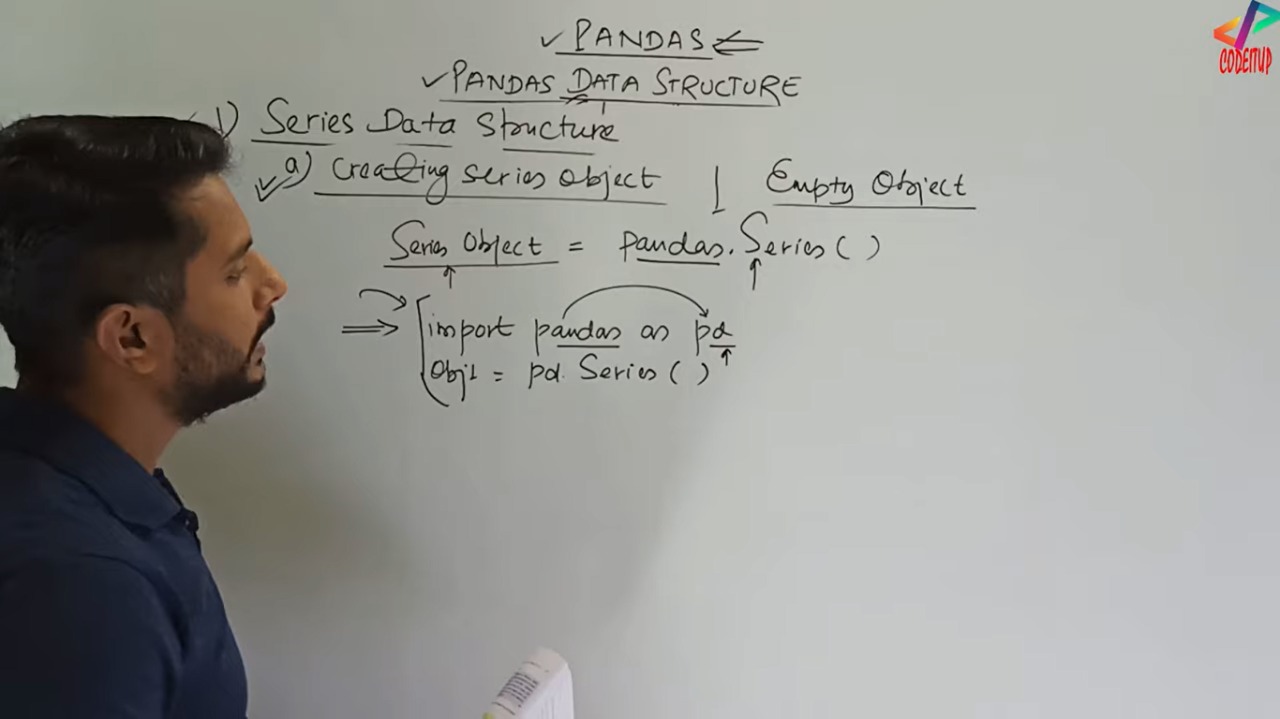 PANDAS
PANDAS DATA STRUCTURE
1) Series Data Structure
a) Creating series object | Empty Object
Series Object = pandas.Series()
import pandas as pd
Obj1 = pd.Series()
CODEITUP